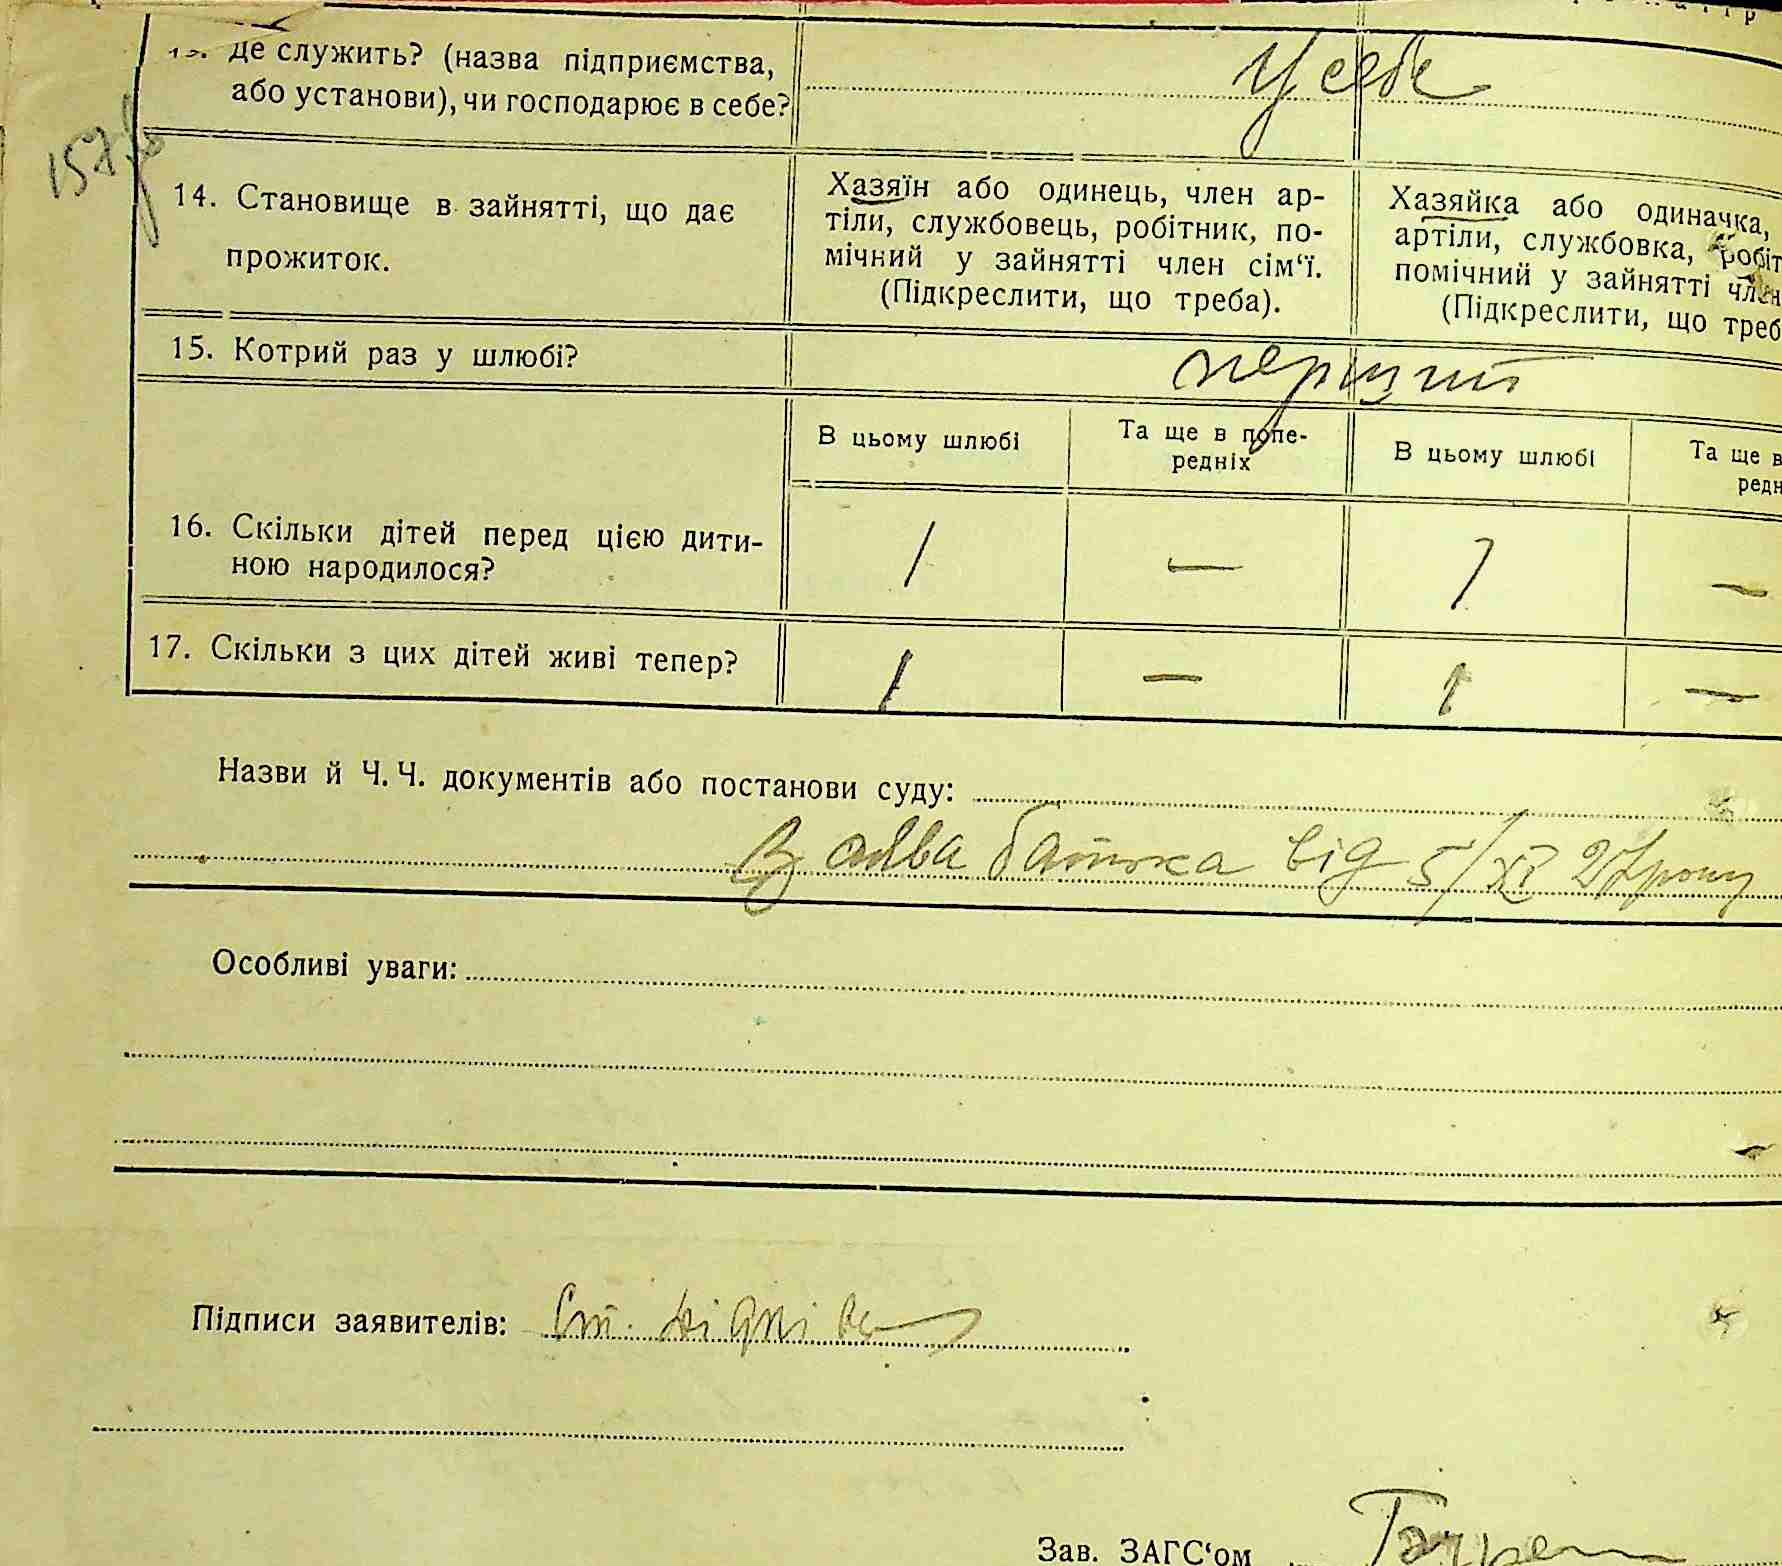 де служить? (назва підприємства,
або установи), чи господарює в себе?
У себе
14. Становище в зайнятті, що дає
прожиток.
Хазяїн або одинець, член ар-
тіли, службовець, робітник, по-
мічний у зайнятті член сім'ї.
(Підкреслити, що треба).
Хазяйка або одиначка,
артіли, службовка, робіт
помічний у зайнятті член
(Підкреслити, що треб
15. Котрий раз у шлюбі?
перший
В цьому шлюбі
Та ще в попе-
редніх
В цьому шлюбі
Та ще в
редн
16. Скільки дітей перед цією дити-
ною народилося?
1 — 1 —
17. Скільки з цих дітей живі тепер?
1 — 1 —
Назви й Ч. Ч. документів або постанови суду:
Заява батька від 5/XI 27 року
Особливі уваги:
Підписи заявителів:
Зав. ЗАГС'ом